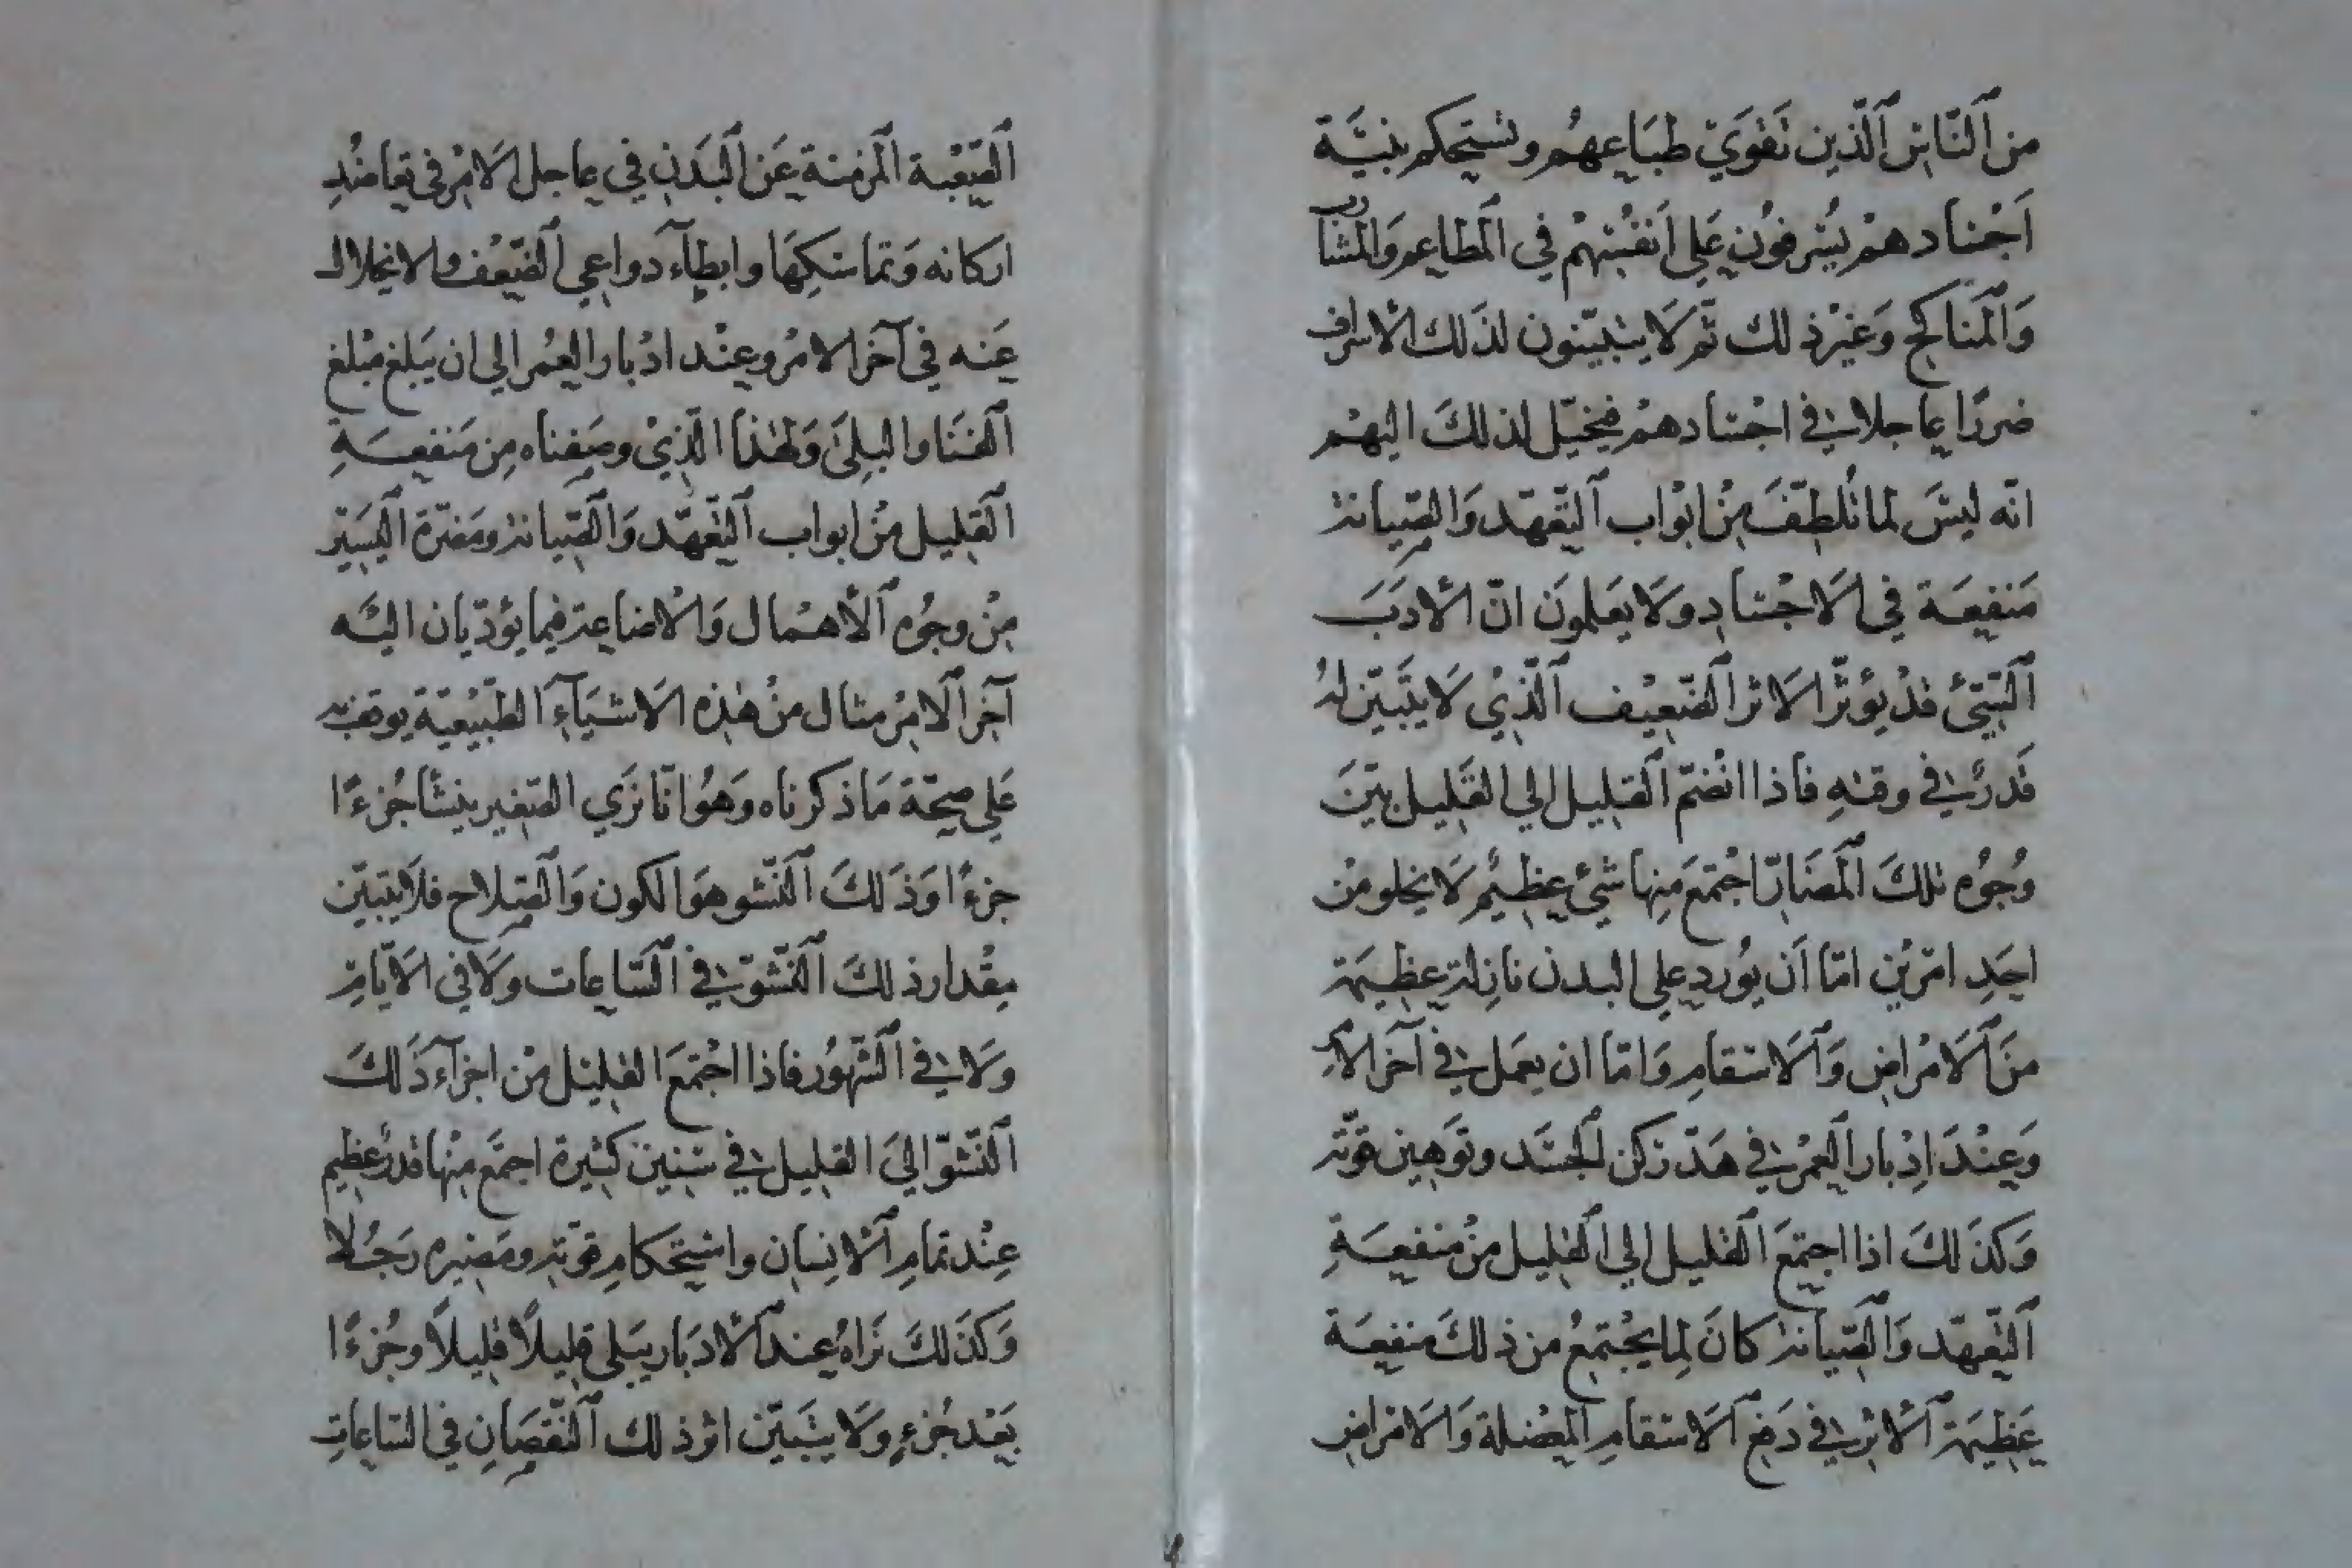 من النّاس الّذين تَقوَي طبَاعهُم وتستحكم بنيَة
اَجْسادهمْ يُسرفُون عَلي اَنفُسهمْ في المَطاعم وَالمشارب
وَالمَناكح وَغيْر ذلك ثم لَا يتبيّنون لذَلك الاسراف
ضررًا عاجلا في اجْسادهمْ فيخيّل لذلكَ اليهْم
انّه ليسَ لما تُلطّفَ مِنْ ابْواب التّعَهّد وَالصّيانة
مَنفعَة في الاَجْساد وَلَا يعَلمونَ انّ الأدَبَ
السّيّئ قدْ يؤثّر الاَثر الضّعيْف الّذيْ لَا يتَبيّن لهُ
قَدرٌ في وقتهِ فاذا انْضمّ القليل الي القَليل مِنَ
وُجُوه تلكَ المَضَارّ اجْتمَعَ مِنها شئ عظيْم لَا يخلو مِنْ
احَدِ امْريْن امّا اَن يُورد علي البدن نازلة عظيمَة
منَ الاَمْراض وَالاَسْقام وَامّا ان يعمَل في آخَر الاَمر
وَعنْدَ اِدْبار العمْر في هَدّ ركن الجَسَد وتوَهين قوّته
وَكذَلكَ اذا اجتمَعَ القليل الي القليل مِنْ منفعَةِ
التّعَهّد وَالصّيانة كانَ لِما يجْتمعُ من ذلكَ منفعَة
عَظيمَة الأثر في دَفع الاَسْقام المعْضلة وَالاَمْراض
الصّعْبة المزمنة عَن البَدَن في عاجل الاَمْر في تعاضُدِ
اركانه وَتماسكِهَا وابطآء دواعي الضّعْف والانحلال
عَنه في آخَر الامْر وعنْد ادْبار العُمر الي ان يَبلغ مَبْلغ
الفنَا والبِلَي وَلهذا الّذيْ وصَفناه مِن مَنفعَةِ
القليل مِنْ ابواب التّعَهّد وَالصّيانة ومَضرّة اليَسيْر
مِنْ وجُوه الأهْمال وَالاضاعة فيما يؤدّيان اليَه
آخر الاَمْر مثال منْ هٰذه الاَشيَآءِ الطّبيْعيّة يوقف به
عَلي صحّة مَا ذكرناه وَهوَ انّا نرَي الصّغير ينشأ جُزءًا
جزءًا وَذَلكَ النّشو هوَ الكون وَالصّلاح فلَا يتبيّن
مِقْدار ذلكَ النّشوّ في السّاعات وَلَا في الاَيّامِ
وَلَا في الشّهُور فاذا اجْتمعَ القليْل مِنْ اجزآء ذَلكَ
النّشوّ اليَ القليل في سنين كثيرة اجتمَع مِنْها قدرٌ عظيم
عنْد تمامِ الأنسان واستحكامِ قوّته ومَصيره رَجُلًا
وَكذَلكَ نَراهُ عند الأدبَار يَبلي قليلًا قليلًا وجُزءًا
بَعْد جُزءٍ وَلَا يتبَيّن اثر ذلك النّقصَان في السّاعاتِ